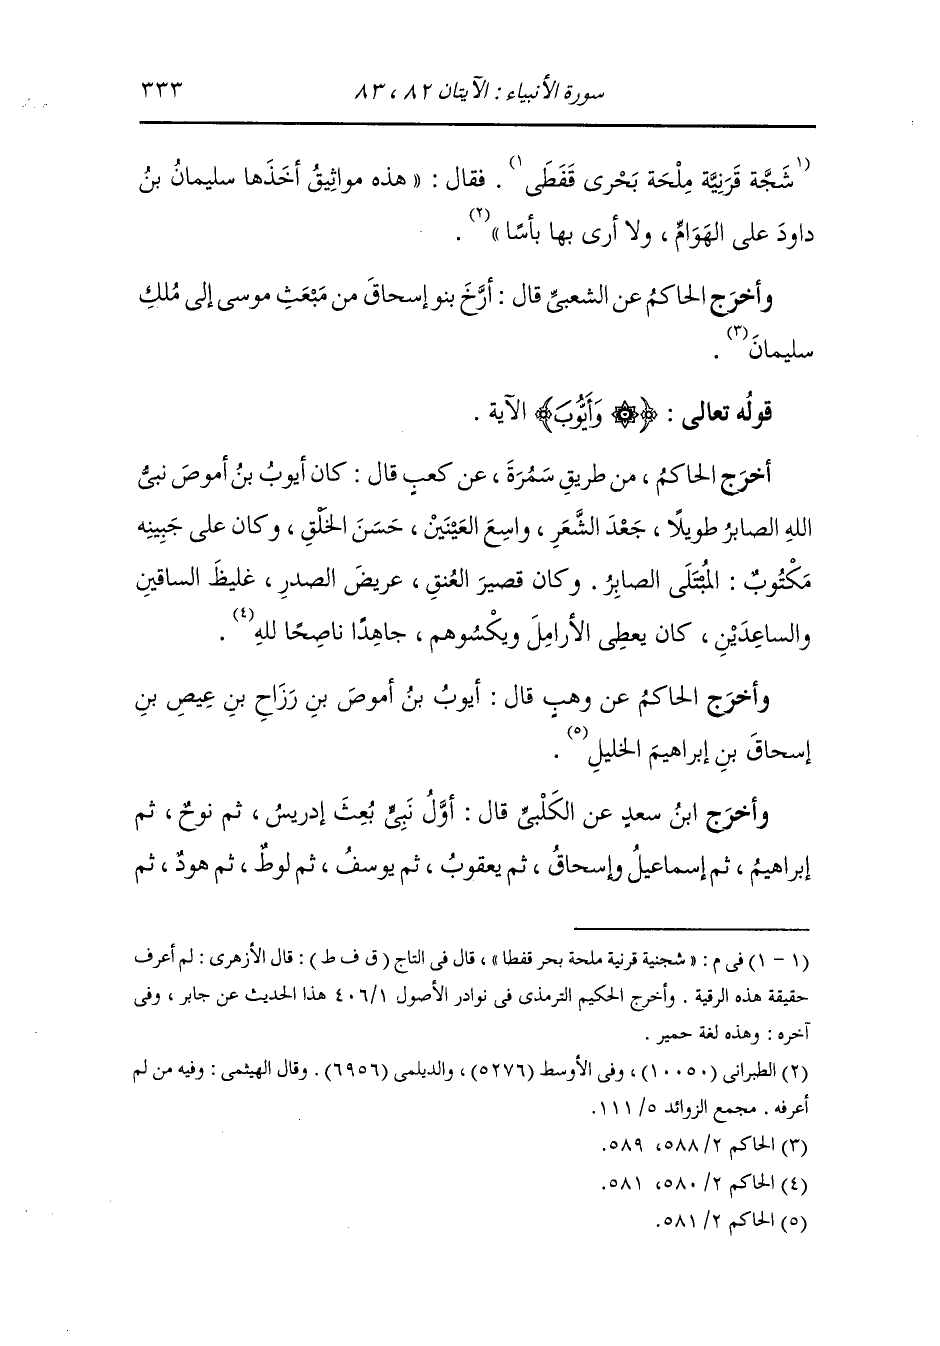 سورة الأنبياء : الآيتان ٨٢ ، ٨٣ ٣٣٣
(١شَجَّة قَرَنِيَّة مِلْحَة بَحْرى قَفَطَى١) . فقال : « هذه مواثِيقُ أخَذَها سليمانُ بنُ
داودَ على الهَوَامِّ ، ولا أرى بها بأسًا »(٢) .
وأخرَج الحاكمُ عن الشعبىِّ قال : أرَّخَ بنو إسحاقَ من مَبْعَثِ موسى إلى مُلكِ
سليمانَ(٣) .
قولُه تعالى : ﴿۞ وَأَيُّوبَ﴾ الآية .
أخرَج الحاكمُ ، من طريقِ سَمُرَةَ ، عن كعبٍ قال : كان أيوبُ بنُ أموصَ نبىُّ
اللهِ الصابرُ طويلًا ، جَعْدَ الشَّعَرِ ، واسِعَ العَيْنَيْنِ ، حَسَنَ الخَلْقِ ، وكان على جَبِينِه
مَكْتُوبٌ : المُبْتَلَى الصابِرُ . وكان قصيرَ العُنقِ ، عريضَ الصدرِ ، غليظَ الساقينِ
والساعِدَيْنِ ، كان يعطِى الأرامِلَ ويكْسُوهم ، جاهِدًا ناصِحًا للهِ(٤) .
وأخرَج الحاكمُ عن وهبٍ قال : أيوبُ بنُ أموصَ بنِ رَزَاحِ بنِ عِيصِ بنِ
إسحاقَ بنِ إبراهيمَ الخليلِ(٥) .
وأخرَج ابنُ سعدٍ عن الكَلْبىِّ قال : أوَّلُ نَبِىٍّ بُعِثَ إدريسُ ، ثم نوحٌ ، ثم
إبراهيمُ ، ثم إسماعيلُ وإسحاقُ ، ثم يعقوبُ ، ثم يوسفُ ، ثم لوطٌ ، ثم هودٌ ، ثم
(١ - ١) فى م : « شجنية قرنية ملحة بحر قفطا » ، قال فى التاج ( ق ف ط ) : قال الأزهرى : لم أعرف
حقيقة هذه الرقية . وأخرج الحكيم الترمذى فى نوادر الأصول ٤٠٦/١ هذا الحديث عن جابر ، وفى
آخره : وهذه لغة حمير .
(٢) الطبرانى (١٠٠٥٠) ، وفى الأوسط (٥٢٧٦) ، والديلمى (٦٩٥٦) . وقال الهيثمى : وفيه من لم
أعرفه . مجمع الزوائد ٥/ ١١١.
(٣) الحاكم ٢/ ٥٨٨، ٥٨٩.
(٤) الحاكم ٢/ ٥٨٠، ٥٨١.
(٥) الحاكم ٢/ ٥٨١.